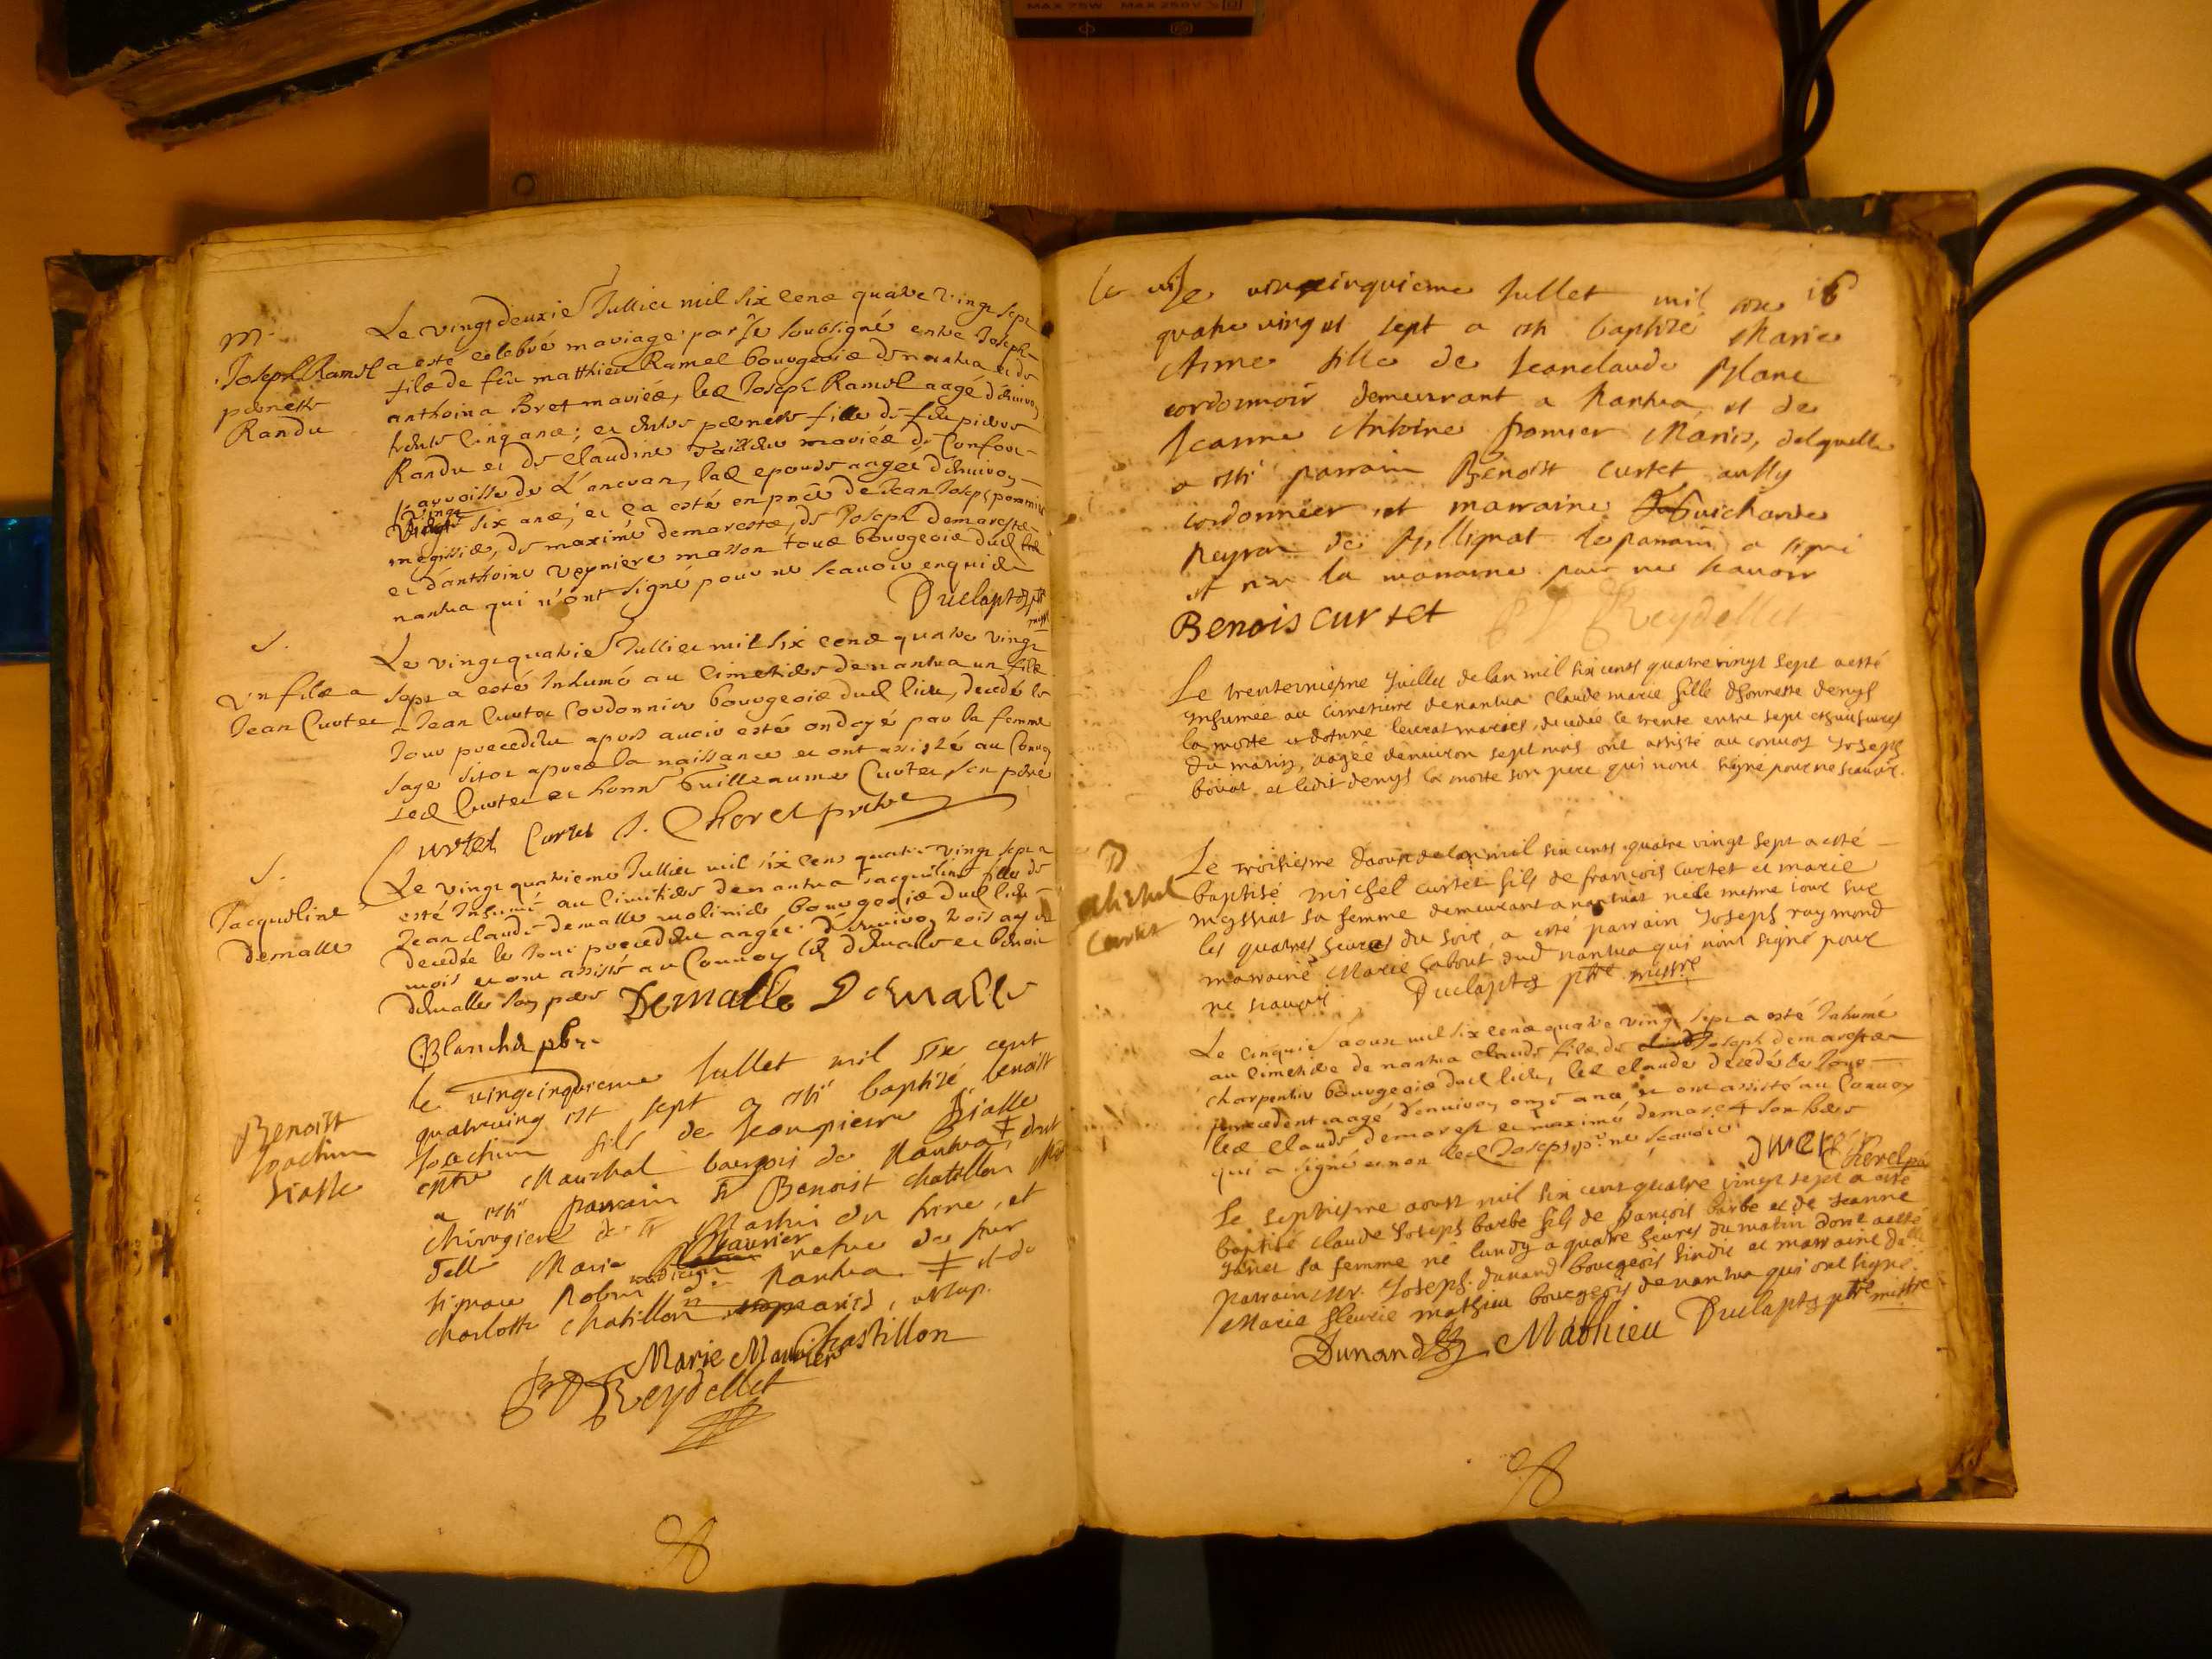 MAX 75W MAX 250V
m.
Joseph Ramel
pernette
Randu
Le vingt deuxie Julliet mil six cens quatre vingt sept
a esté celebré mariage par Je soubsigné entre Joseph
fils de feu matthieu Ramel bourgeois de nantua et de
anthoina Bret mariés, led Joseph Ramel aagé d'environ
trente cinq ans; et entre pernette fille de feu pierre
Randu et de claudine mariés de Confort
parroisse de L'ancran, lad epouse aagée d'environ
vingt six ans; et ça esté en pnce de Jean Joseph
megissier, de maxime demareste, de Joseph demareste
et d'anthoine vepniere masson tous bourgeois dud
nantua qui n'ont signé pour ne scavoir enquis
Duclapt ptre
S.
Un fils a
Jean Curtet
Le vingt quatrie Julliet mil six cens quatre vingt
sept a esté Inhumé au cimetiere de nantua un fils
a Jean Curtet Cordonnier bourgeois dud lieu, decedé le
Jour precedent apres avoir esté ondoyé par la femme
sage sitot apres la naissance et ont assisté au Convoy
led Curtet et honn Guilleaume Curtet son pere
Curtet Curtet J. Cherel prebre
S.
Jacqueline
demalle
Le vingt quatrieme Julliet mil six cens quatre vingt sept a
esté Inhumé au cimitiere de nantua Jacqueline fille de
Jean claude demalle molinier bourgeois dud lieu
decedée le Jour precedent aagée d'environ trois ans
mois et ont assisté au Convoy led demalle et benoit
demalle son pere Demalle Demalle
Blanchet pbre
Benoist
Joachim
Sialle
le vingcinquieme Jullet mil six cent
quatreving et sept a esté baptizé benoist
Joachim fils de Jeanpierre Sialle
Maréchal bourgois de Nantua dont
a esté parrain Sr Benoist chatillon
chirurgien
delle Marie Maurier vefve de feu
Nantua et de
charlotte chatillon mariés,
Marie Maurier Chastillon
Reydellet
16
le vingcinquieme Jullet mil six
quatre ving et sept a esté baptizé Marie
Anne fille de Jeanclaude Blanc
cordonnier demeurant a Nantua et de
Jeanne Antoine fromier Mariés, delquelle
a esté parrain Benoist curtet aussy
cordonnier et marraine Guicharde
Peyron de le parrain a signé
et non la marraine pour ne scavoir
Benois curtet Reydellet
Le trenteuniesme Juillet de lan mil six cents quatre vingt sept a esté
Inhumée au cimetiere de nantua claude marie fille dhonneste denys
la motte et mariés, decedée le trente entre sept et huit heures
du matin, aagée denviron sept mois ont assisté au convoy Joseph
et ledit denys la motte son pere qui nont signé pour ne scavoir.
B
Michel
Curtet
Le troisiesme daoust de lan mil six cents quatre vingt sept a esté
baptisé michel curtet fils de françois curtet et marie
meyssiat sa femme demeurant a nantuat né le mesme iour sur
les quatres heures du soir, a esté parrain Joseph raymond
marraine Marie dud nantua qui nont signé pour
ne scavoir Duclapt ptre missre
Le cinquie aoust mil six cens quatre vingt sept a esté Inhumé
au cimetiere de nantua claude fils de Joseph demarest
charpentier bourgeois dud lieu, led claude decedé le Jour
precedent aagé d'environ onze ans, et ont assisté au Convoy
led claude demarest et maxime demarest son
qui a signé et non led Joseph pr ne scavoir Cherel
Le septiesme aoust mil six cens quatre vingt sept a esté
baptisé claude Joseph barbe fils de françois barbe et de Jeanne
Janet sa femme né lundy a quatre heures du matin dont a esté
parrain Mr. Joseph dunand bourgeois sindic et marraine delle
Marie fleurie mathieu bourgeois de nantua qui ont signé.
Dunand Mathieu Duclapt ptre missre